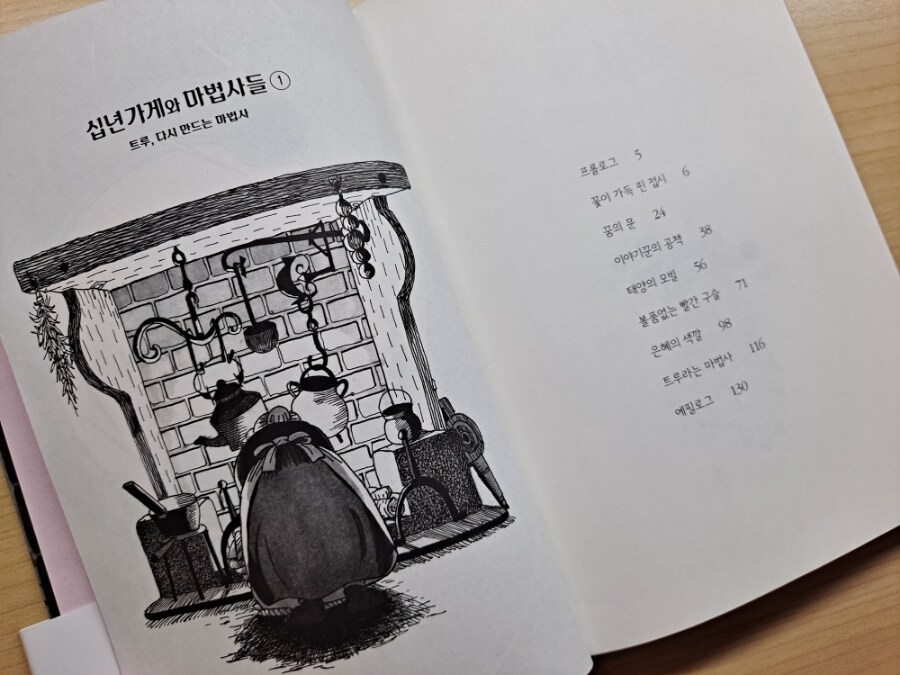 십년가게와 마법사들 ①
트루, 다시 만드는 마법사
프롤로그 5
꽃이 가득 핀 접시 6
꿈의 문 24
이야기꾼의 공책 38
태양의 모발 56
볼품없는 빨간 구슬 71
은혜의 색깔 98
트루라는 마법사 116
에필로그 130